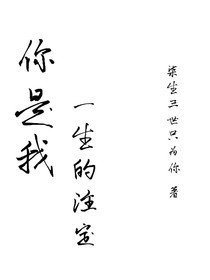 你是我
一生的注定
柒生三世只为你 著